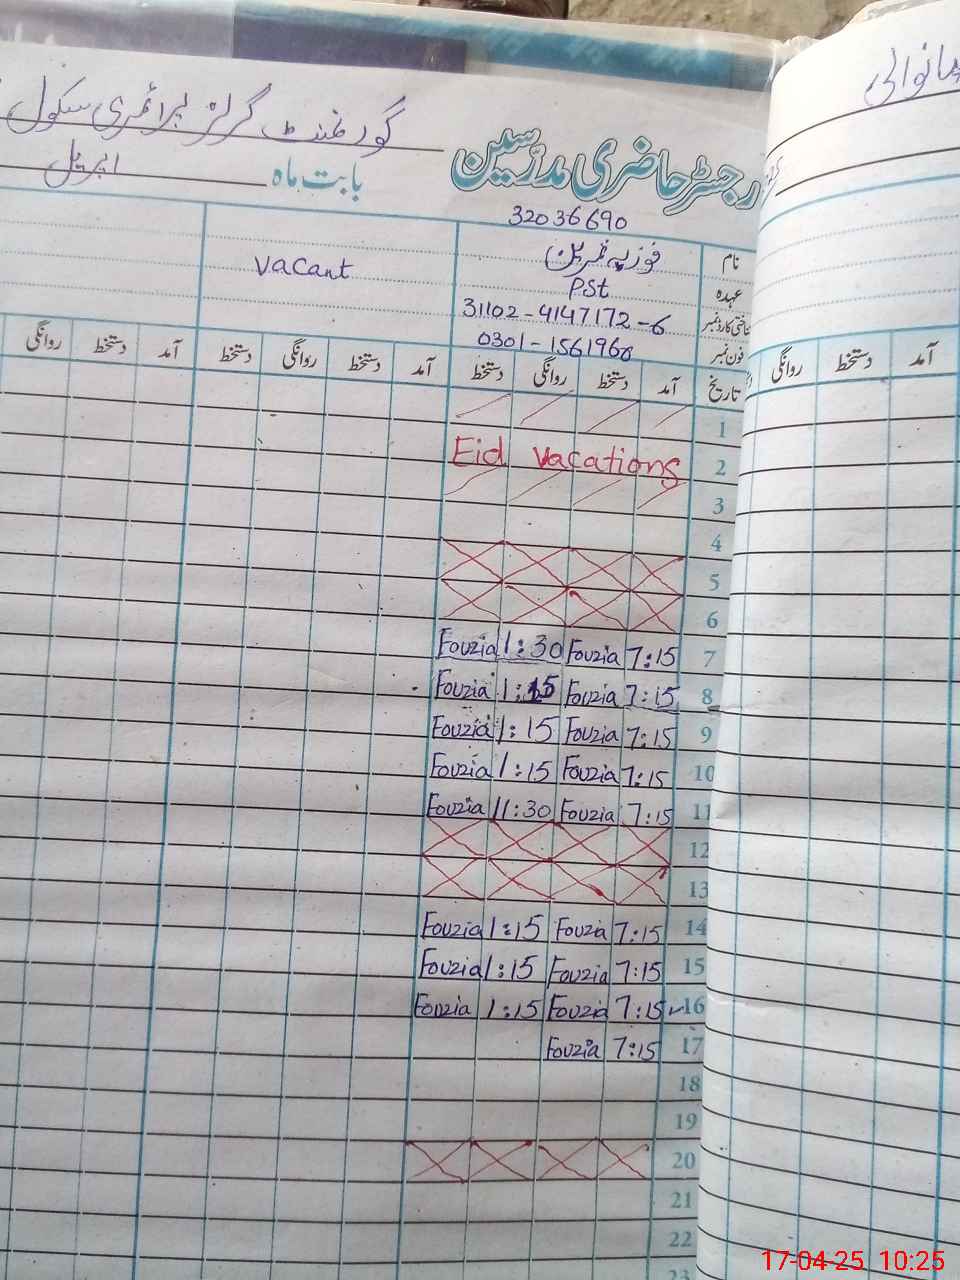 گورنمنٹ گرلز پرائمری سکول
رجسٹر حاضری مدرسین
بابت ماہ اپریل
32036690
نام فوزیہ
vacant
عہدہ PST
31102-4147172-6
فون نمبر 0301-1561968
تاریخ آمد دستخط روانگی دستخط آمد دستخط روانگی دستخط آمد دستخط روانگی
روانگی دستخط آمد
1
2 Eid vacations
3
4
5
6
7 7:15 Fouzia 1:30 Fouzia
8 7:15 Fouzia 1:15 Fouzia
9 7:15 Fouzia 1:15 Fouzia
10 7:15 Fouzia 1:15 Fouzia
11 7:15 Fouzia 11:30 Fouzia
12
13
14 7:15 Fouzia 1:15 Fouzia
15 7:15 Fouzia 1:15 Fouzia
16 7:15 Fouzia 1:15 Fouzia
17 7:15 Fouzia
18
19
20
21
22
23
17-04-25 10:25